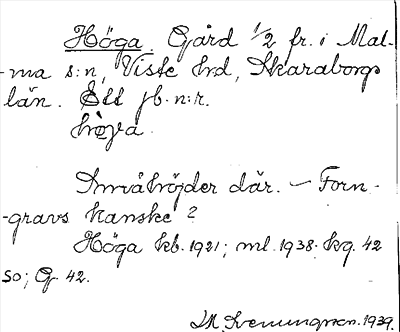 Höga. Gård 1/2 fr. i Mal-
-ma s:n, Viste hrd, Skaraborgs
län. Ett jb. n:r.
Småhöjder där. – Forn-
-gravs kanske?
Höga kb. 1921; ml. 1938. kg. 42
so; G. 42.
1939.